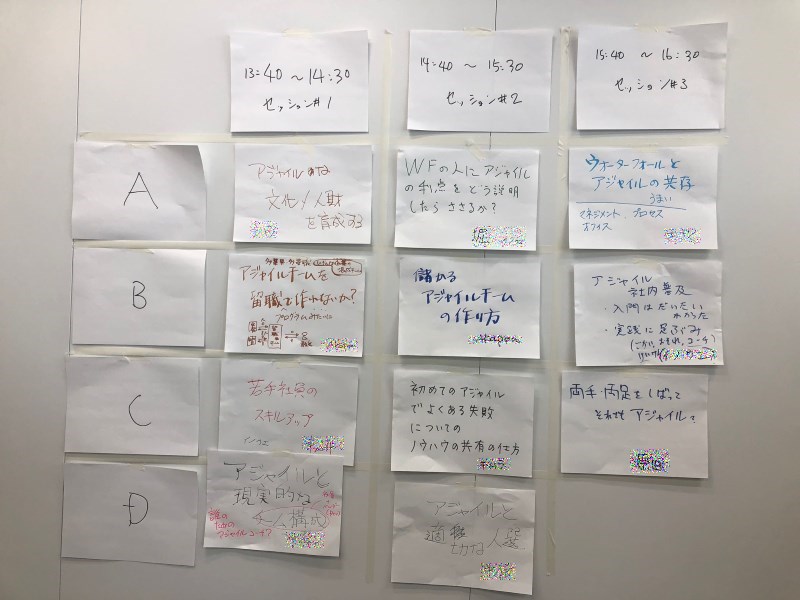 13:40 ~ 14:30
セッション#1
14:40 ~ 15:30
セッション#2
15:40 ~ 16:30
セッション#3
A
アジャイル的な
文化/人財
を育成する
WFの人にアジャイル
の利点をどう説明
したらささるか?
ウォーターフォールと
アジャイルの共存
うまい
マネジメント プロセス
オフィス
B
アジャイルチームを
留職で作れないか?
プログラムみたいに
儲かる
アジャイルチーム
の作り方
アジャイル
社内普及
・入門はだいたい
わかった
・実践に足ぶみ
C
若手社員の
スキルアップ
初めてのアジャイル
でよくある失敗
についての
ノウハウの共有の仕方
両手・両足をしばって
それでもアジャイル?
D
アジャイルと
現実的な
チーム構成
誰の
ための
アジャイルコーチ?
アジャイルと
適切な人選